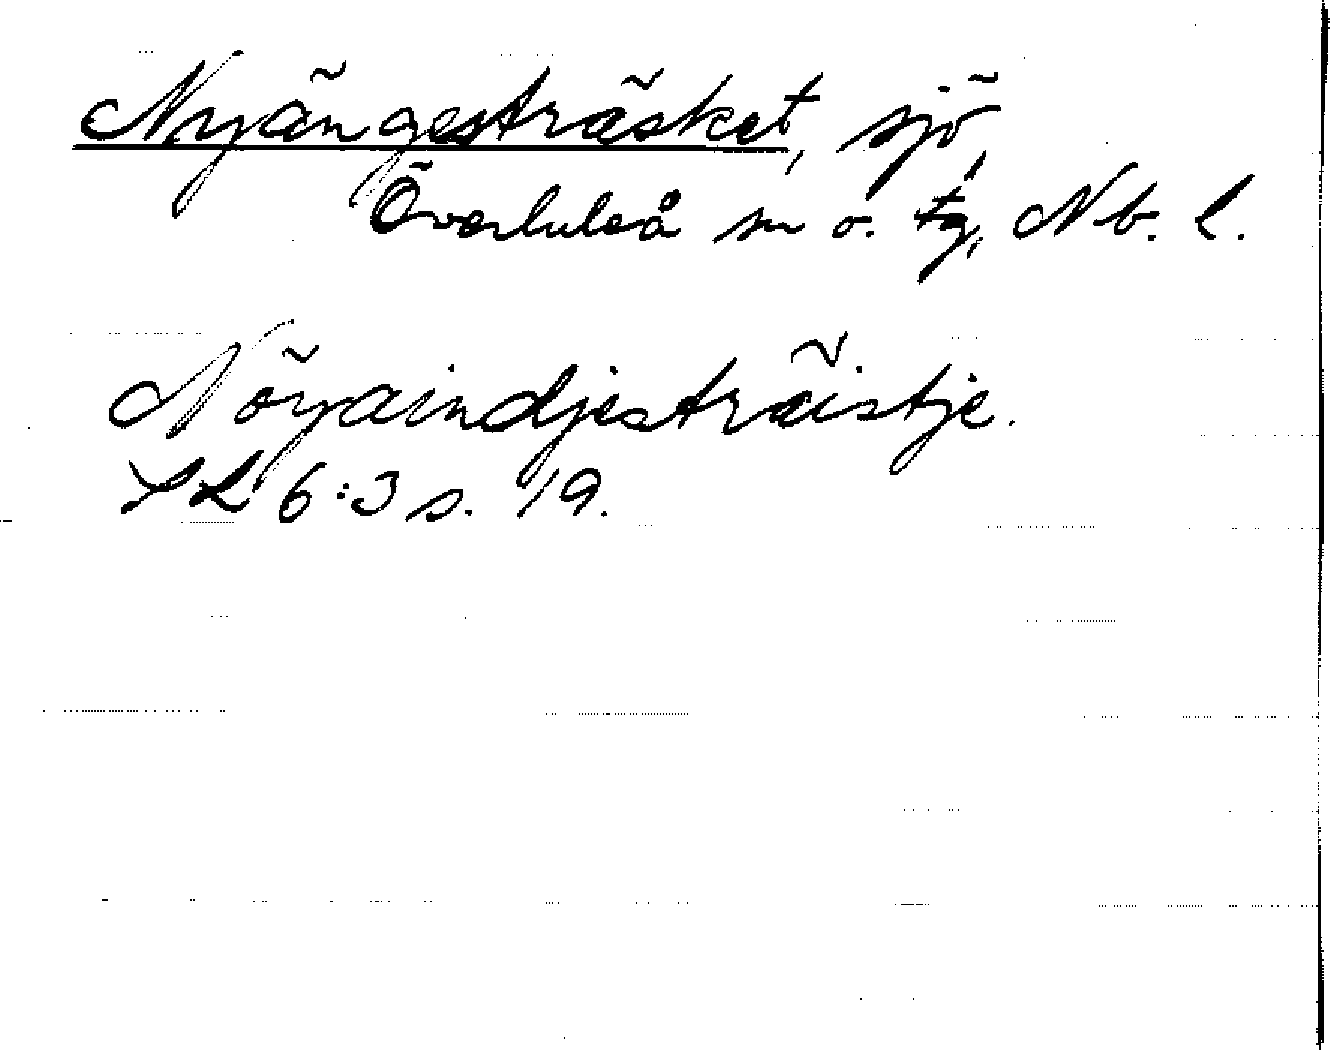 Nyängesträsket, sjö,
Överluleå sn o. tg, Nb. l.
Nöyaindjesträistje.
SL 6:3 s. 19.